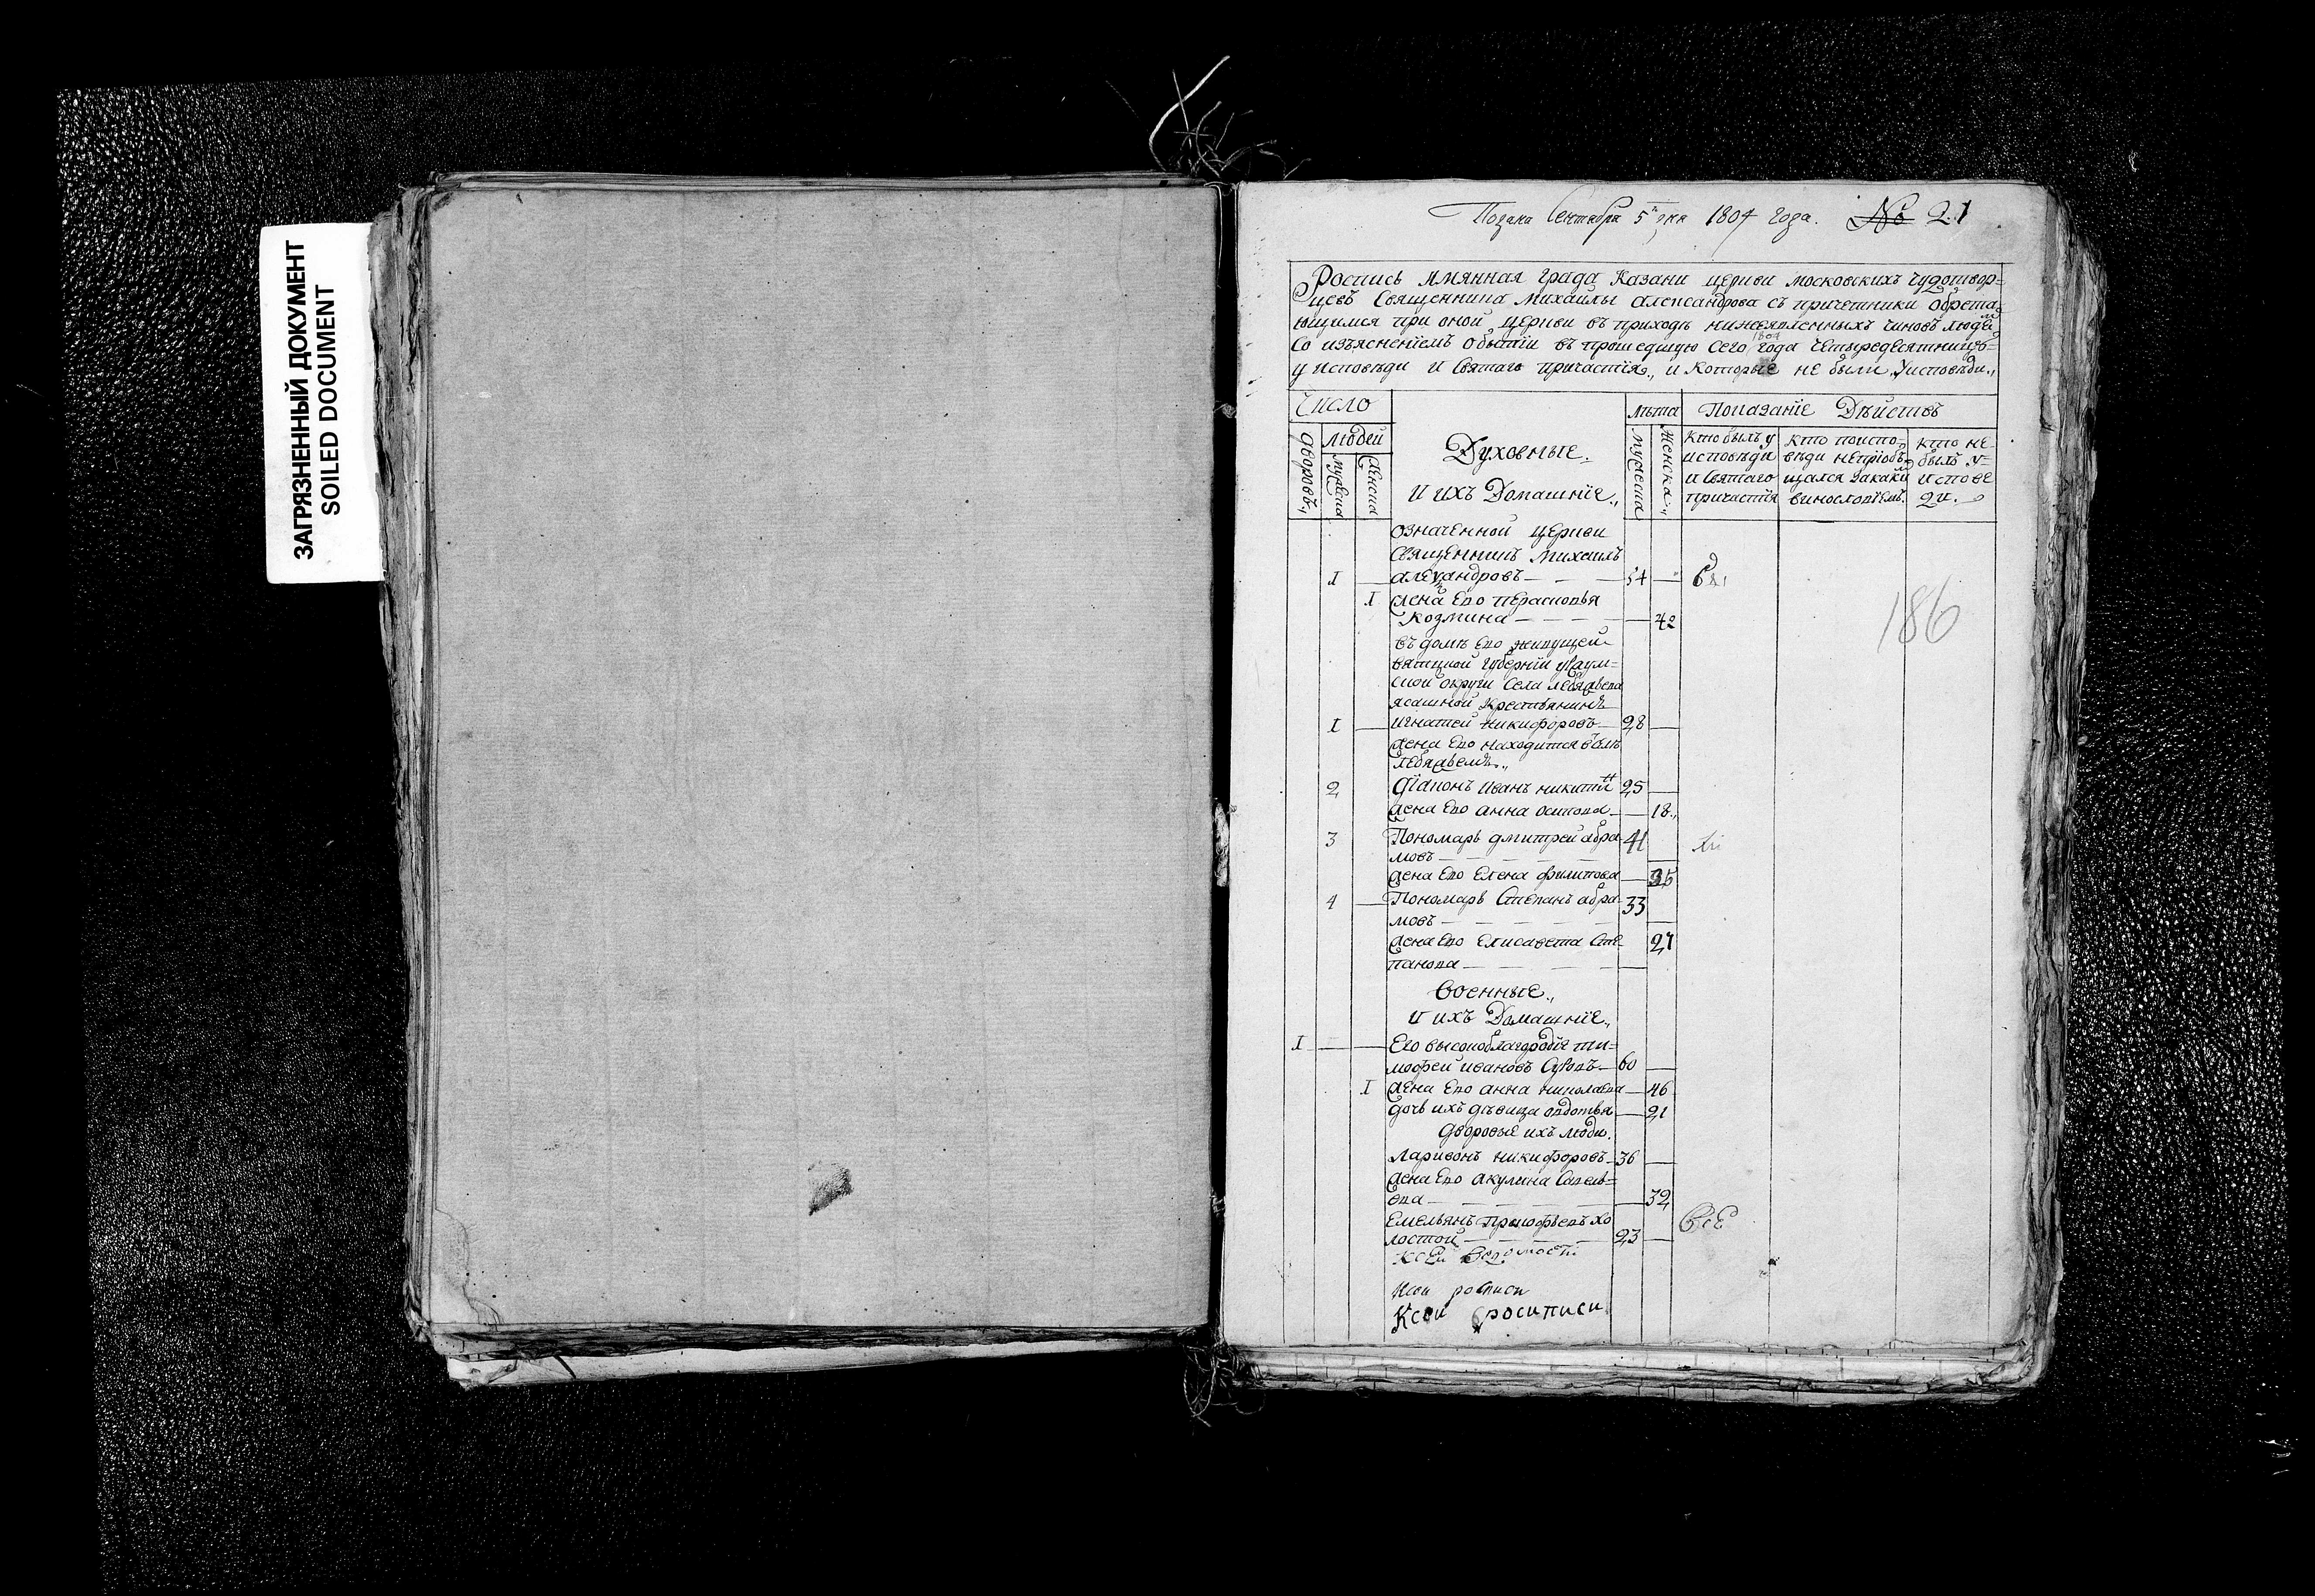 ЗАГРЯЗНЕННЫЙ ДОКУМЕНТ
SOILED DOCUMENT
Подана Сентября 5 дня 1804 года. № 21
Роспись имянная града Казани церкви московскихъ чудотвор=
цевъ Священника Михаилы Александрова съ причетники обрета=
ющимся при оной церкви въ приходѣ нижеявленныхъ чиновъ людей
со изъясненїемъ о бытїи въ прошедшую сего 1804 года четыредесятницу
у исповѣди и Святаго причастїя, и которые не были у исповѣди
Число
лѣта
Показанїе Дѣйствъ
дворовъ
людей
мужеска
женска
Духовные
и ихъ Домашнїе
мужеска
женска
Кто былъ у
исповѣди
и Святаго
причастїя
кто испо=
вѣди не прїоб=
щался за каким
винословїемъ
кто не
былъ у=
испове
ди
означенной церкви
священникъ Михаилъ
1 Александровъ 54
1 жена Его Перасковья
Козмина 42
въ домѣ Его живущей
вятцкой губернїи
ской округи села
ясашной крестьянинъ
1 Игнатей Никифоровъ 28
жена Его находится въ
2 дїаконъ Иванъ Никитин 25
жена Его Анна Осипова 18
3 Пономарь Дмитрей Абра
мовъ 41
жена Его Елена Филипова 35
4 Пономарь Степанъ Абра
мовъ 33
жена Его Елисавета Сте
панова 27
Военные
и ихъ Домашнїе
1 Его высокоблагородїе Ти=
мофей Ивановъ 60
1 жена Его Анна Николаева 46
дочь ихъ дѣвица Авдотья 21
дворовые ихъ люди
Ларивонъ Никифоровъ 36
жена Его Акулина Савель=
ева 32
Емельянъ Прокофьевъ хо
лостой 23
Всѣ
186
Ксей Ведомости
Ксеи росписи
Ксеи росиписи